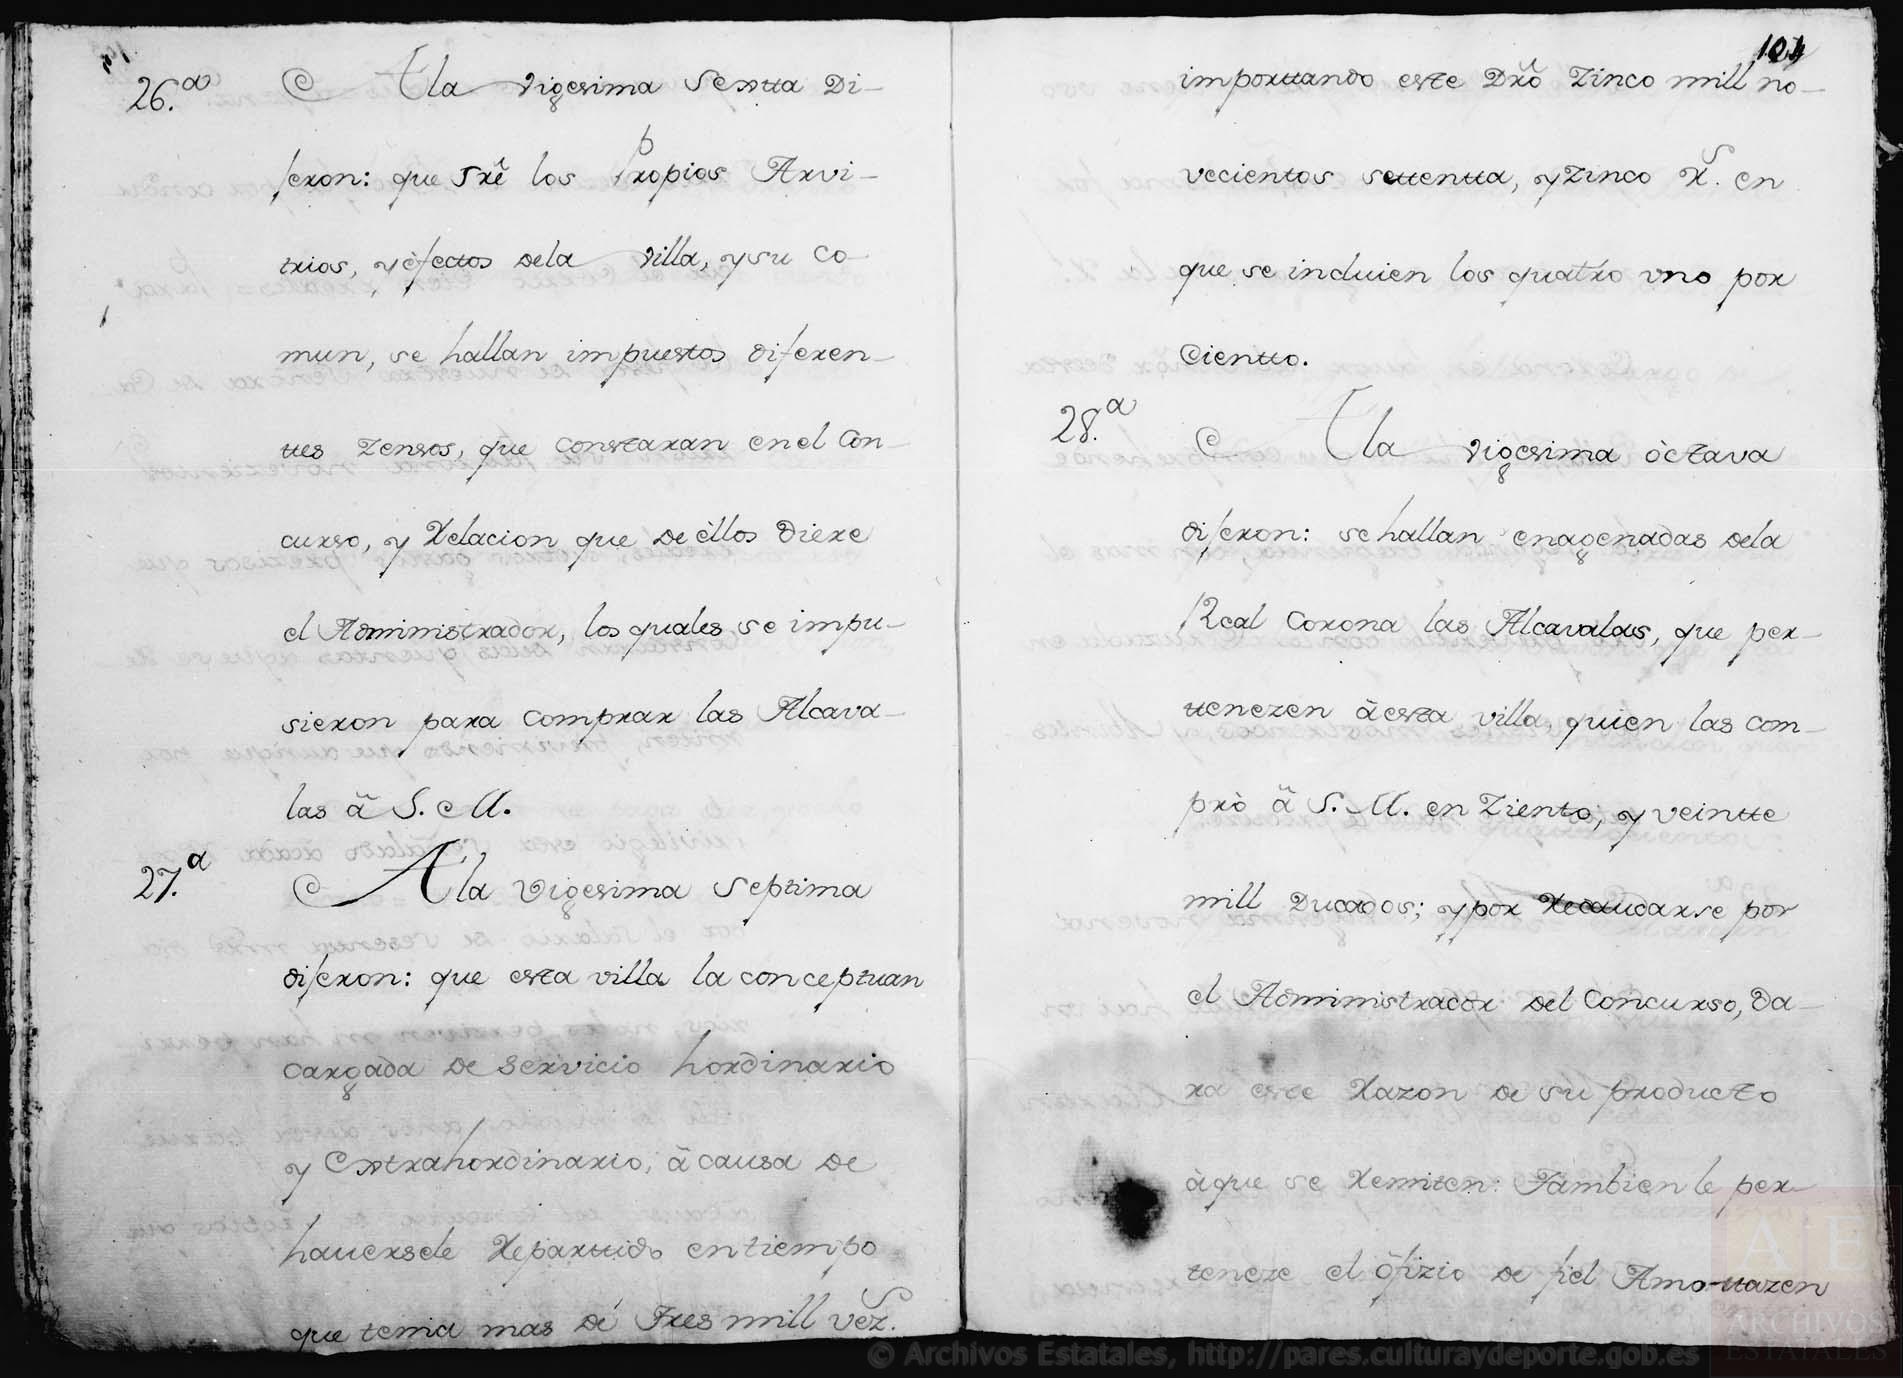 26.ª A la vigesima Sextta Di-
jeron: que sre los Propios Arvi-
trios, y efectos dela villa, y su Co
mun, se hallan impuestos diferen-
ttes Zensos, que constaran en el Con-
curso, y Relacion que de èllos diere
el Administrador, los quales se impu-
sieron para comprar las Alcava-
las â S. M.
27.ª A la vigesima Septima
dijeron: que esta villa la conceptuan
cargada de servicio hordinario
y Extrahordinario, â causa de
hauersele Reparttido en tiempo
que tenia mas de Tres mill vezs.
104
importtando este Dro Zinco mill no-
vecientos settentta, y Zinco Rs. en
que se incluien los quatro uno por
Cientto.
28.ª A la vigesima òctava
dijeron: se hallan enagenadas dela
Real Corona las Alcavalas, que per-
ttenezen à esta villa, quien las com-
prò â S. M. en Ziento, y veintte
mill Ducados; y por Recaudarse por
el Administrador del Concurso, da-
ra este Razon de su producto
à que se Remiten: Tambien le per-
teneze el ôfizio de fiel Amo-ttazen
© Archivos Estatales, http://pares.culturaydeporte.gob.es
AE
ARCHIVOS
ESTATALES